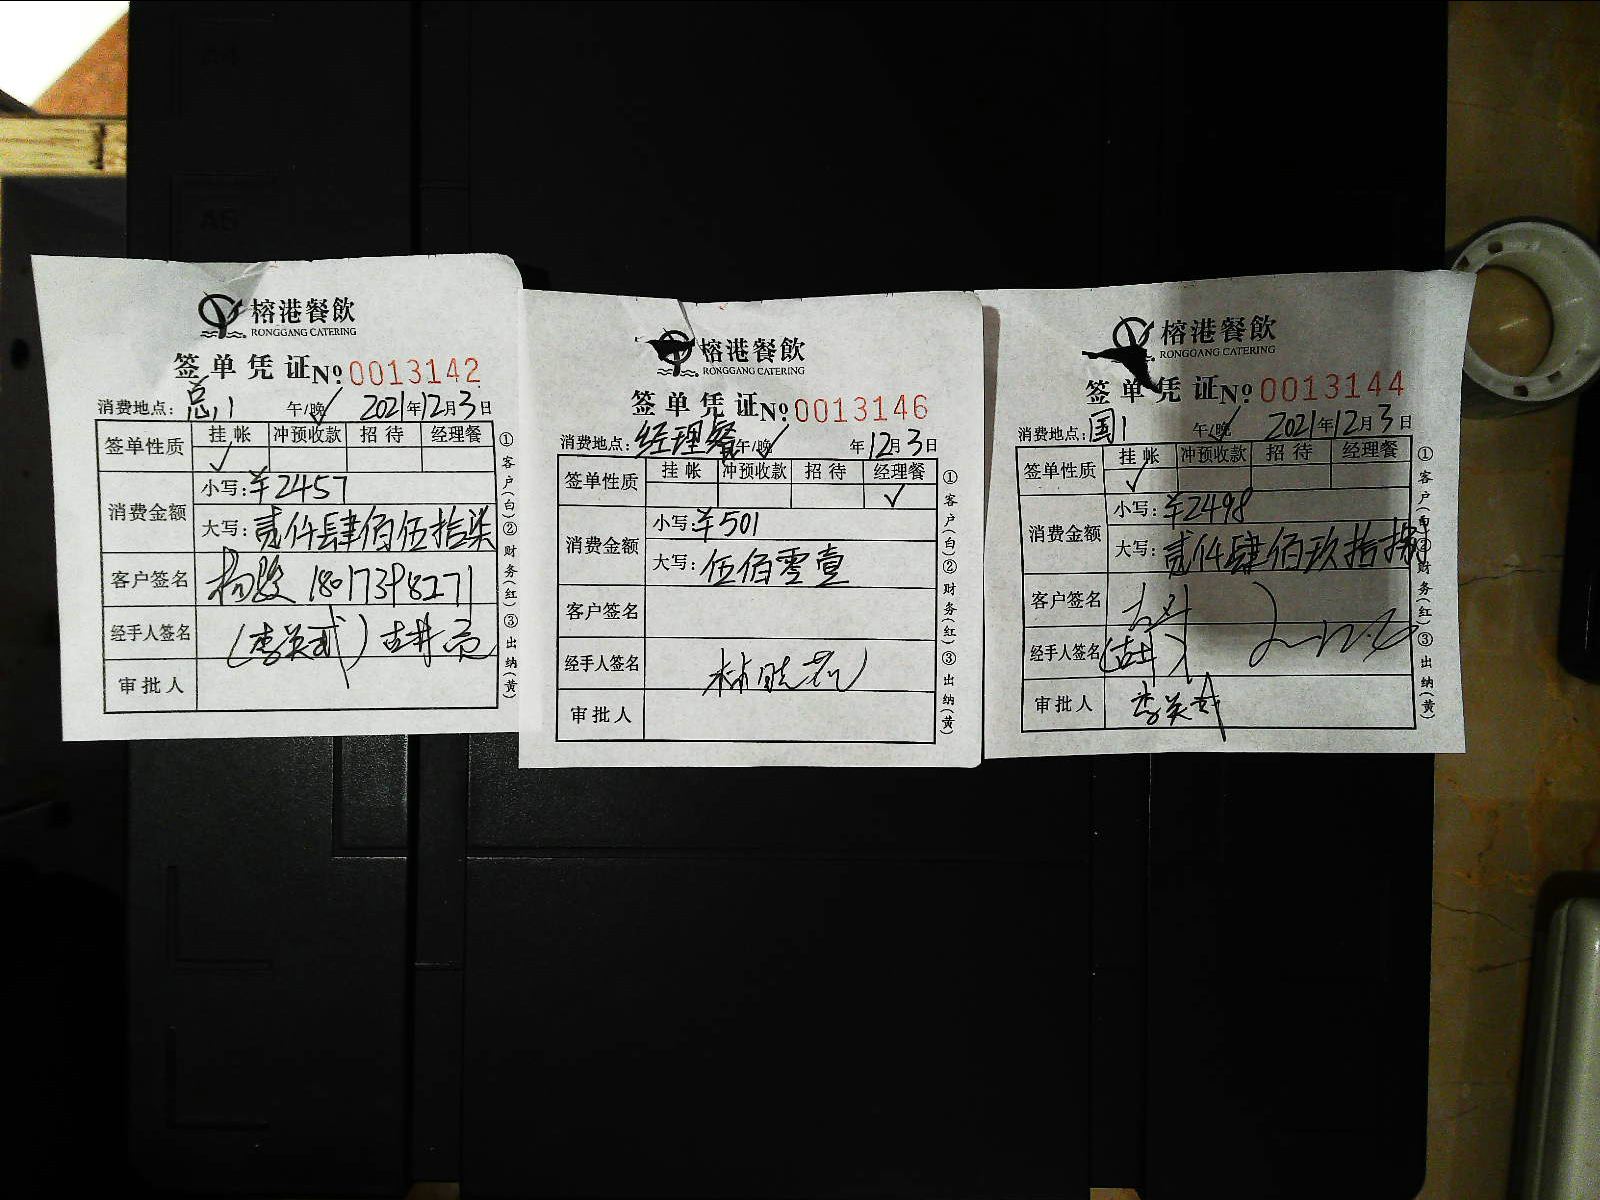 A4
A5
榕港餐飲
RONGGANG CATERING
签单凭证 № 0013142
消费地点：总11 午/晚 2021年12月3日
签单性质 挂帐 冲预收款 招待 经理餐
✓
消费金额
小写：¥2457
大写：贰仟肆佰伍拾柒
客户签名 18017398271
经手人签名 (李美武)
审批人
①客户(白)②财务(红)③出纳(黄)
榕港餐飲
RONGGANG CATERING
签单凭证 № 0013146
消费地点：经理餐 午/晚 年12月3日
签单性质 挂帐 冲预收款 招待 经理餐
✓
消费金额
小写：¥501
大写：伍佰零壹
客户签名
经手人签名
审批人
①客户(白)②财务(红)③出纳(黄)
榕港餐飲
RONGGANG CATERING
签单凭证 № 0013144
消费地点：国1 午/晚 2021年12月3日
签单性质 挂帐 冲预收款 招待 经理餐
✓
消费金额
小写：¥2498
大写：贰仟肆佰玖拾捌
客户签名
经手人签名
审批人 李美武
①客户(白)②财务(红)③出纳(黄)